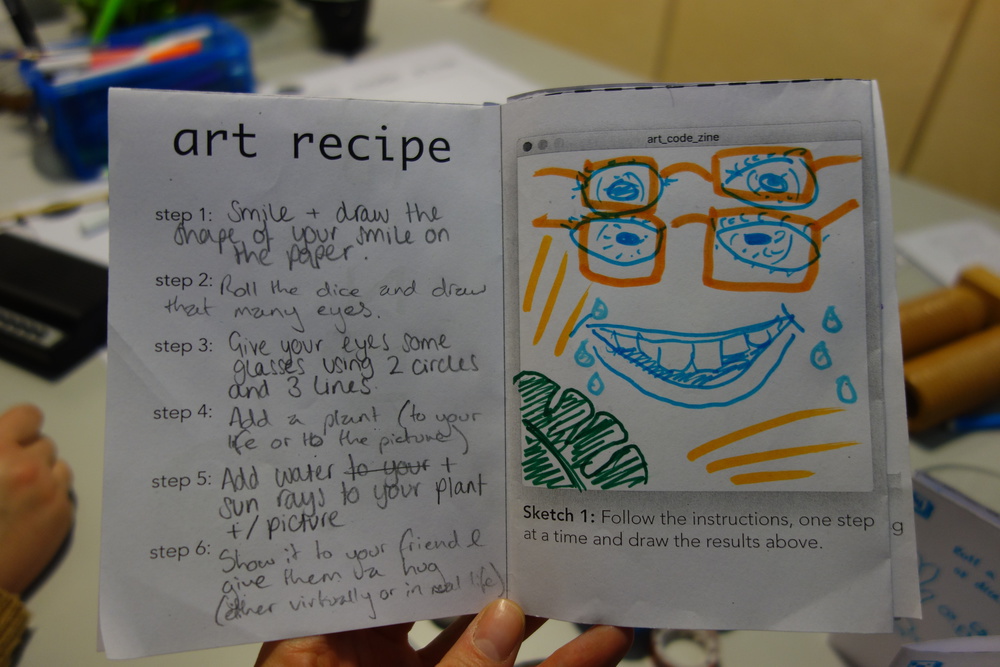 art recipe
step 1: Smile + draw the
shape of your smile on
the paper.
step 2: Roll the dice and draw
that many eyes.
step 3: Give your eyes some
glasses using 2 circles
and 3 lines.
step 4: Add a plant (to your
life or to the picture)
step 5: Add water to your +
sun rays to your plant
+/picture
step 6: Show it to your friend &
give them a hug
(either virtually or in real life)
art_code_zine
Sketch 1: Follow the instructions, one step
at a time and draw the results above.
g